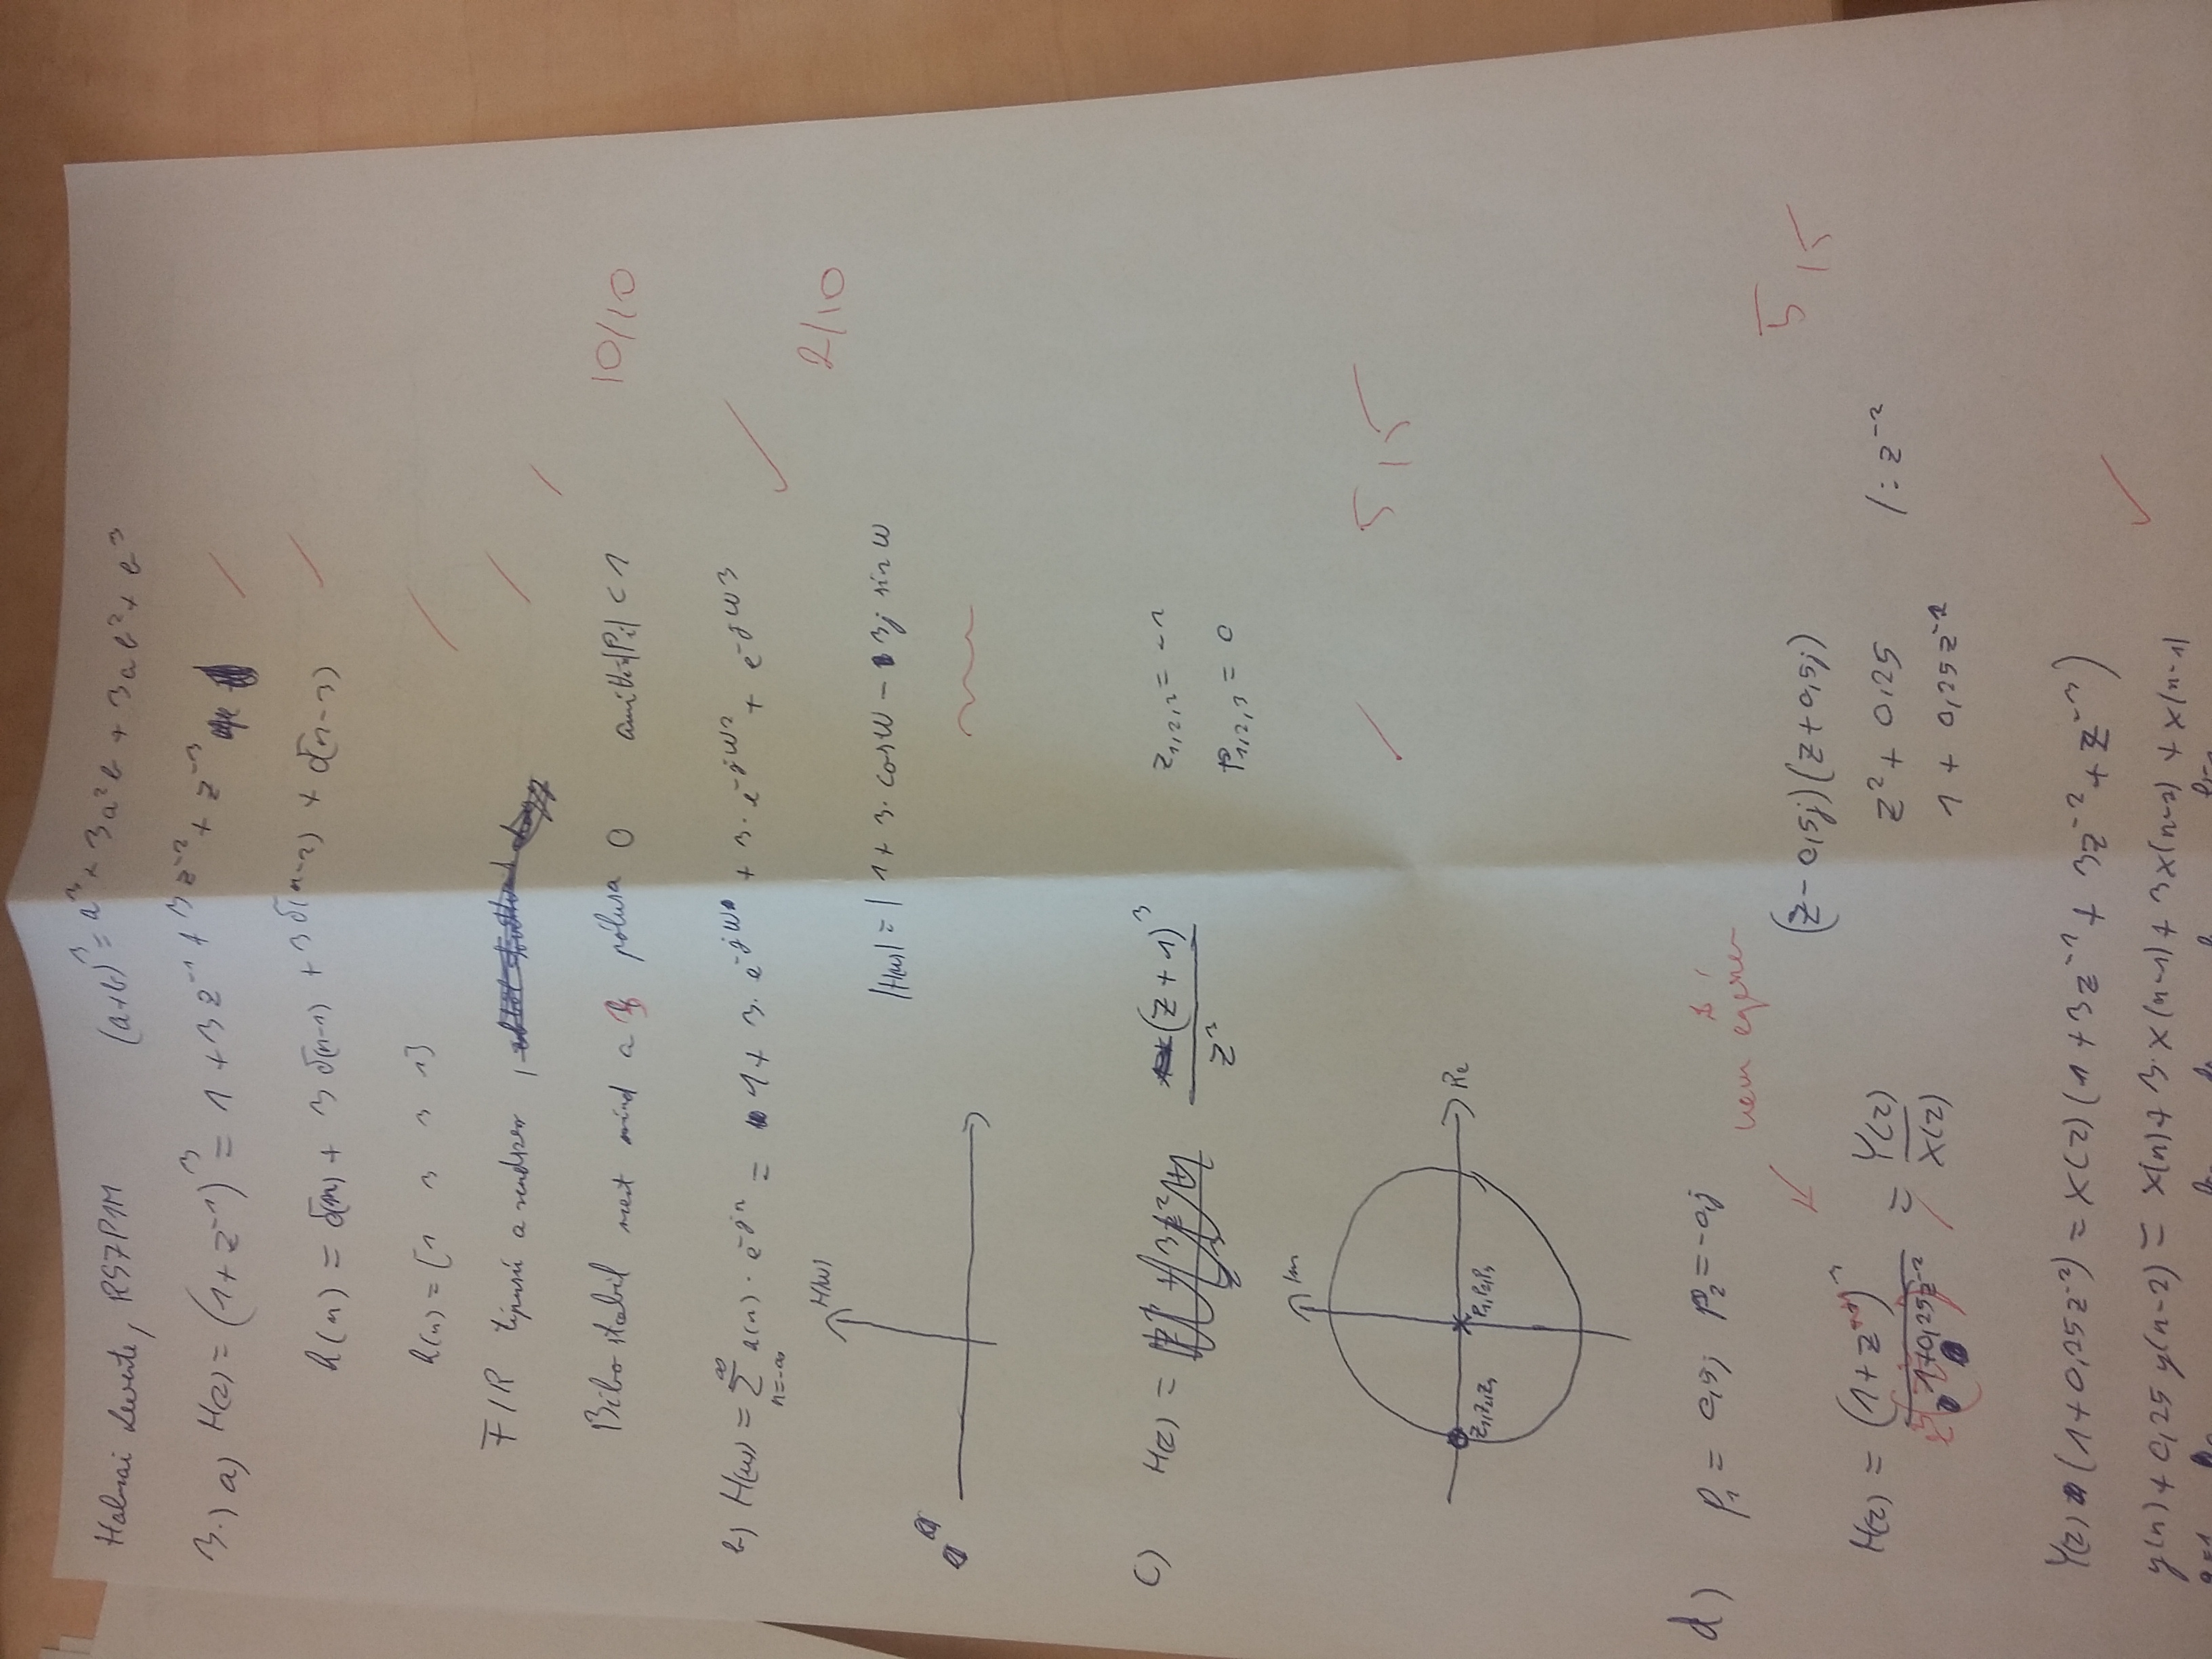 Halmai Levente, RS7P1M
(a+b)³ = a³ + 3a²b + 3ab² + b³
3.) a) H(z) = (1+z⁻¹)³ = 1 + 3z⁻¹ + 3z⁻² + z⁻³
h(n) = δ(n) + 3δ(n-1) + 3δ(n-2) + δ(n-3)
h(n) = [1 3 3 1]
FIR típusú a rendszer
Bibo stabil mert mind a 3 pólusa 0 |Pi| < 1
10/10
b) H(ω) = Σ n=-∞ ∞ h(n) · e⁻ʲⁿ = 1 + 3 · e⁻ʲω + 3 · e⁻ʲω² + e⁻ʲω³
2/10
H(ω)
|H(ω)| = | 1 + 3 · cosω - 3j sinω
c) H(z) = (z+1)³ / z³
z₁,₂,₃ = -1
p₁,₂,₃ = 0
Im
Re
z₁,z₂,z₃
P₁,P₂,P₃
5/5
d) P₁ = 0,5j P₂ = -0,5j
nem egyszer
5/5
(z - 0,5j)(z + 0,5j)
H(z) = (1+z⁻¹)³ / 1+0,25z⁻² = Y(z) / X(z)
z² + 0,25 /: z⁻²
1 + 0,25z⁻²
Y(z) (1+0,25z⁻²) = X(z) (1 + 3z⁻¹ + 3z⁻² + z⁻³)
y(n) + 0,25 y(n-2) = x(n) + 3·x(n-1) + 3x(n-2) + x(n-1)